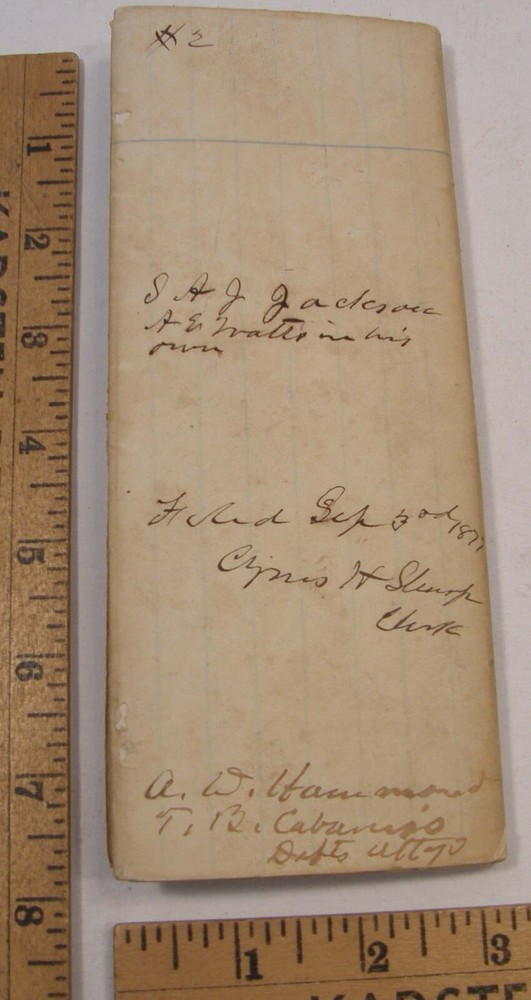 # 2
S A J Jackson
A E Watts in his
own
Filed Sep 3rd 1877
Cyrus H Sharp
Clerk
A. W. Hammond
T. B. Cabaniss
Defts Attys
1
2
3
4
5
6
7
8
1 2 3